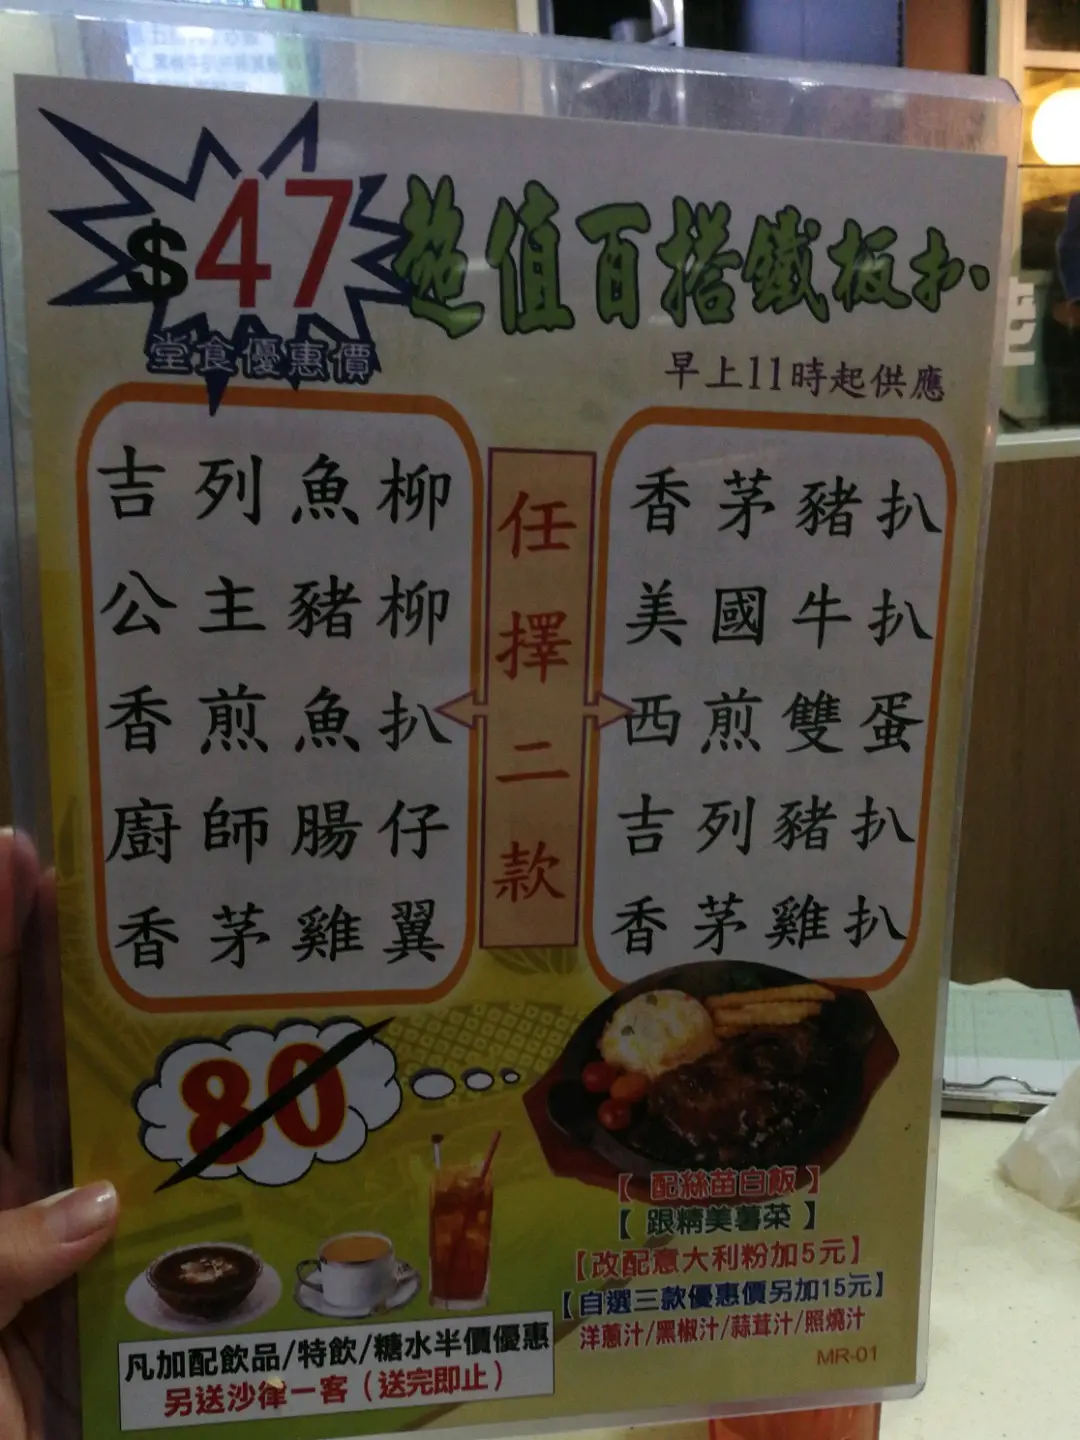 $47
堂食優惠價
超值百搭鐵板扒
早上11時起供應
吉列魚柳
公主豬柳
香煎魚扒
廚師腸仔
香茅雞翼
任擇二款
香茅豬扒
美國牛扒
西煎雙蛋
吉列豬扒
香茅雞扒
80
【 配絲苗白飯 】
【 跟精美薯菜 】
【改配意大利粉加5元】
【自選三款優惠價另加15元】
洋蔥汁/黑椒汁/蒜茸汁/照燒汁
MR-01
凡加配飲品/特飲/糖水半價優惠
另送沙律一客（送完即止）